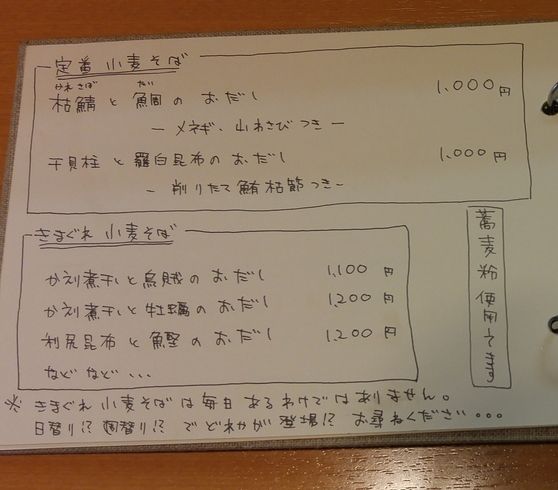 定番 小麦そば
かれさば だい
枯鯖 と 鯛 の おだし 1,000円
ー メネギ、山わさび つき ー
干貝柱 と 羅臼昆布 の おだし 1,000円
ー 削りたて 鮪枯節つき ー
きまぐれ 小麦そば
かえり煮干し と 烏賊 の おだし 1,100円
かえり煮干し と 牡蠣 の おだし 1,200円
利尻昆布 と 鰹 の おだし 1,200円
などなど・・・
蕎麦粉使用してます
※ きまぐれ 小麦そば は 毎日 あるわけではありません。
日替り!? 週替り!? で どれかが 登場!? お尋ねください・・・